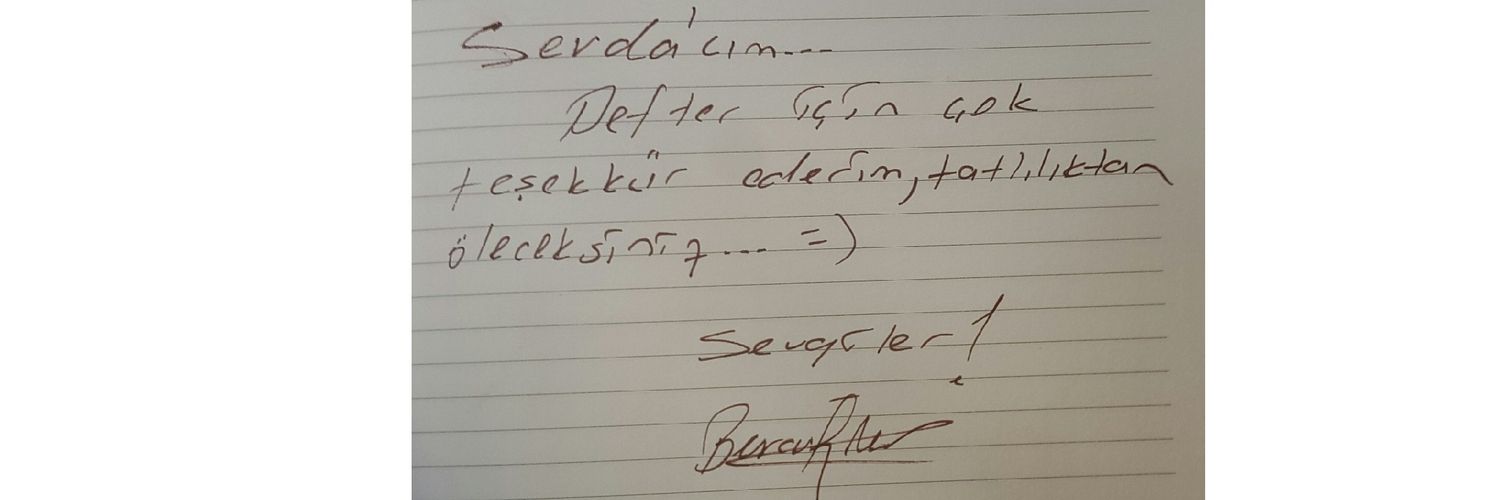 Serda'cım...
Defter için çok
teşekkür ederim, tatlılıktan
öleceksiniz... =)
Sevgiler!